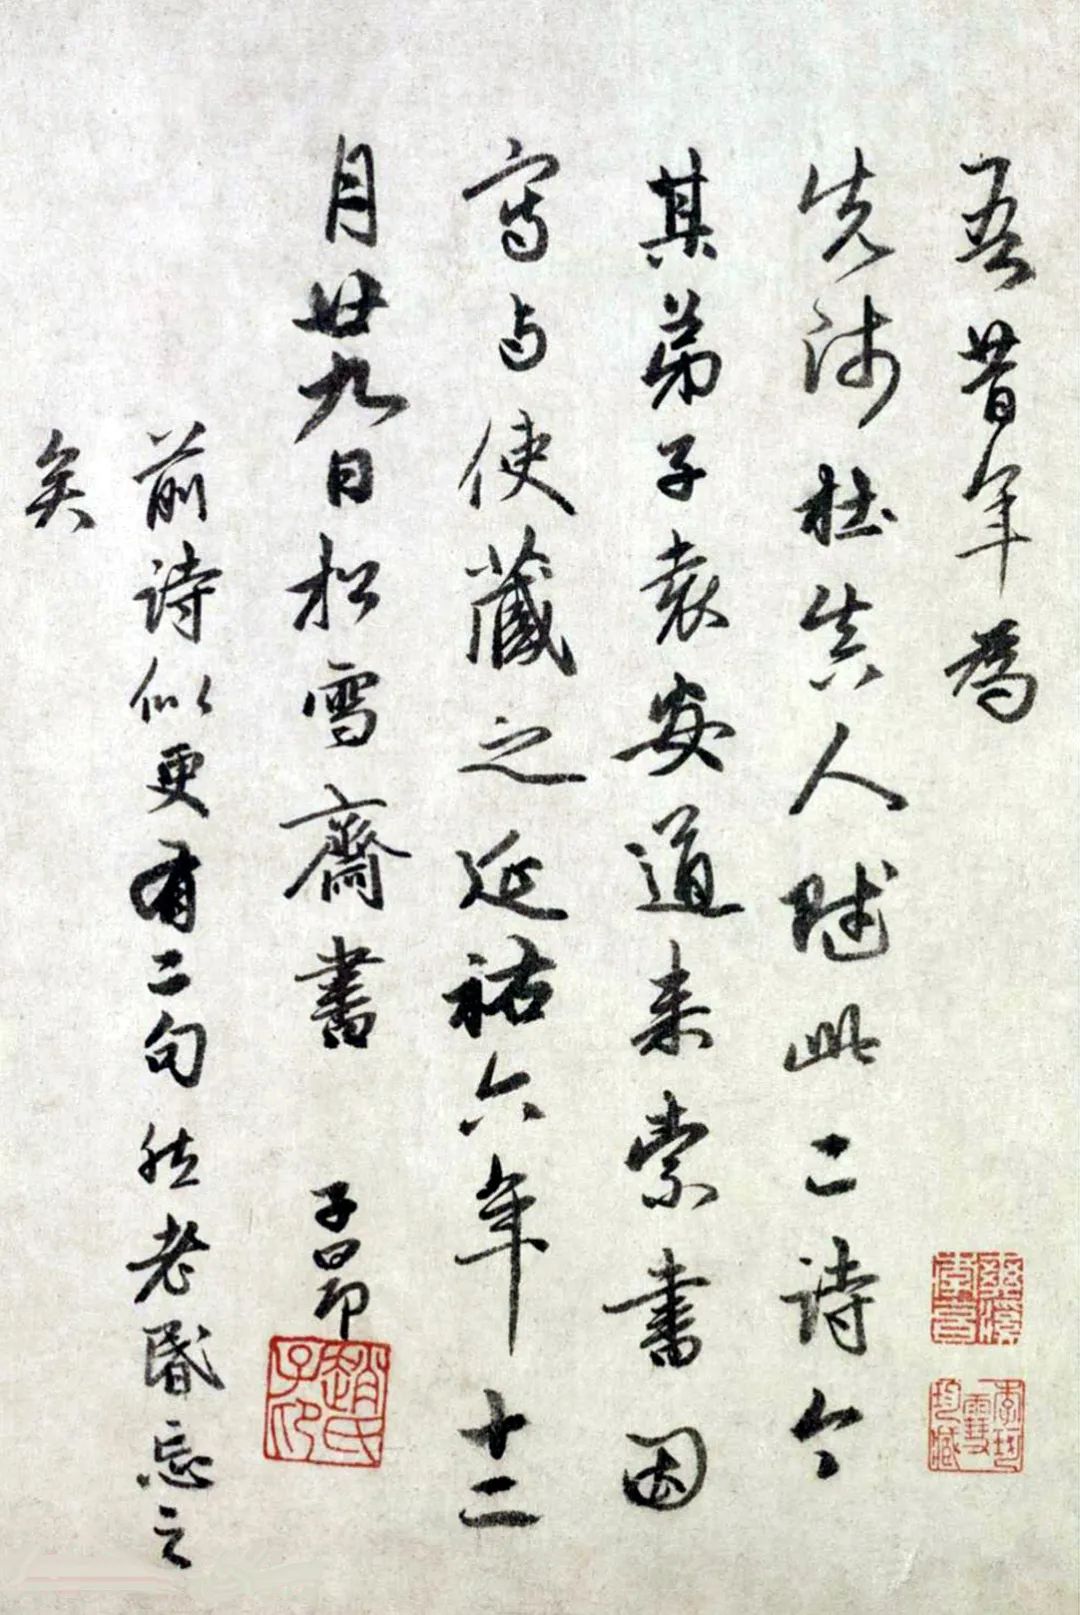 吾昔年為
先師杜真人賦此二詩今
其弟子袁安道来索書因
寫与使藏之延祐六年十二
月廿九日松雪齋書 子昂
前詩似更有二句然老昏忘之
矣
趙氏子昂